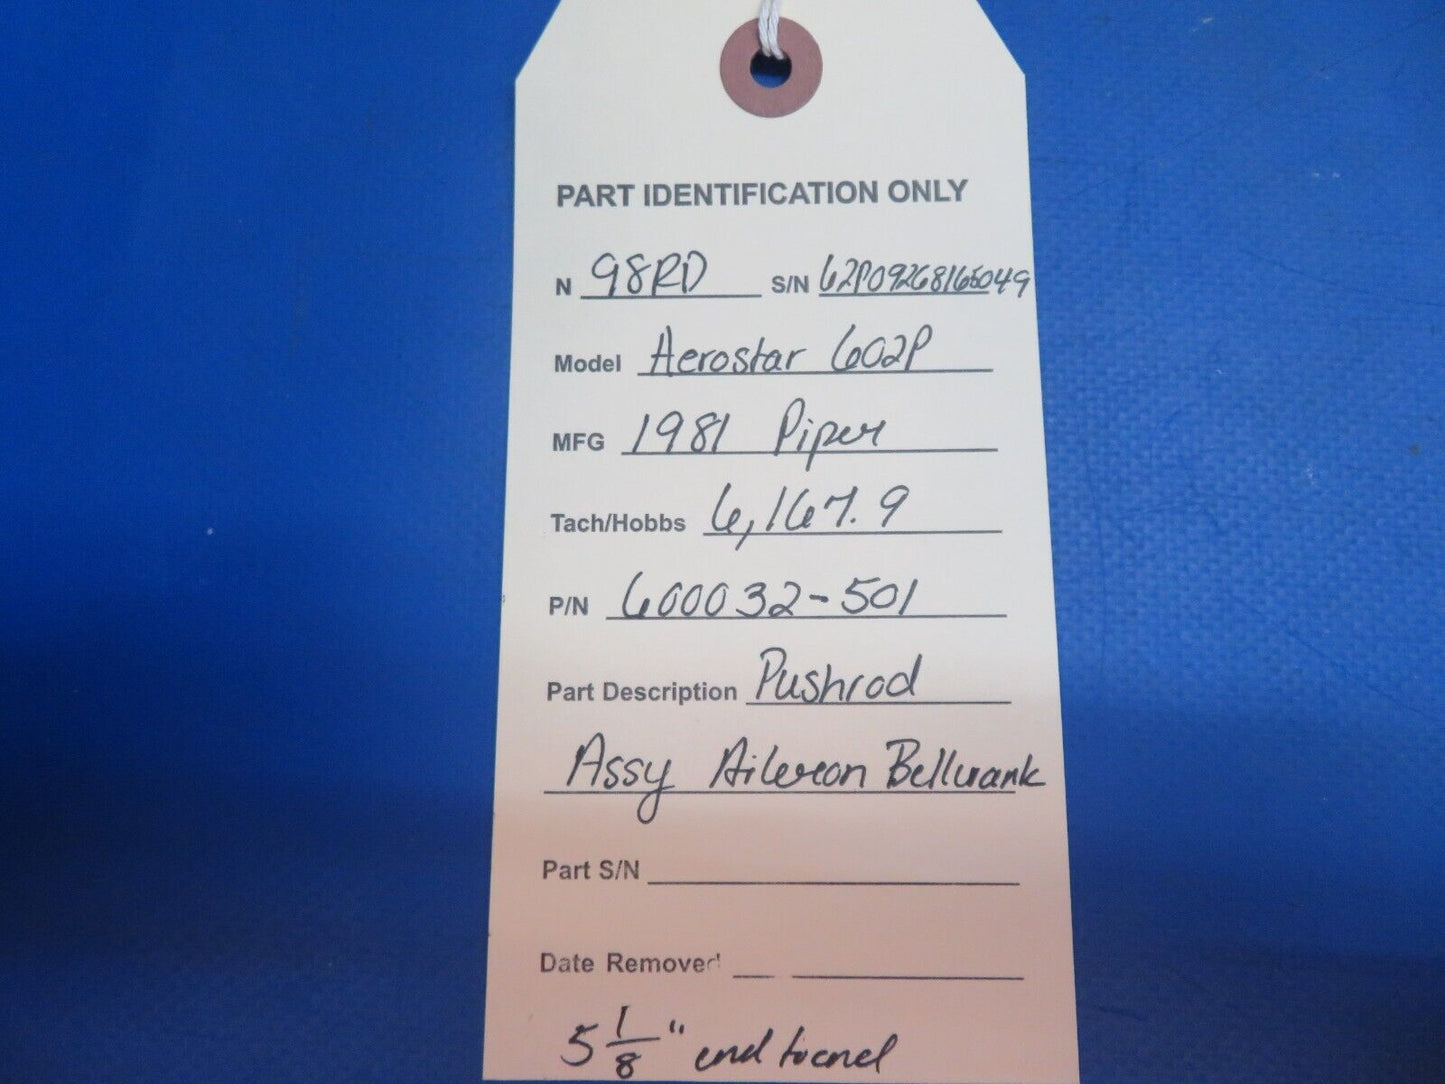 PART IDENTIFICATION ONLY
N 98RD S/N 62P09268165049
Model Aerostar 602P
MFG 1981 Piper
Tach/Hobbs 6,167.9
P/N 600032-501
Part Description Pushrod
Assy Aileron Bellcrank
Part S/N
Date Removed
5 1/8" end to end